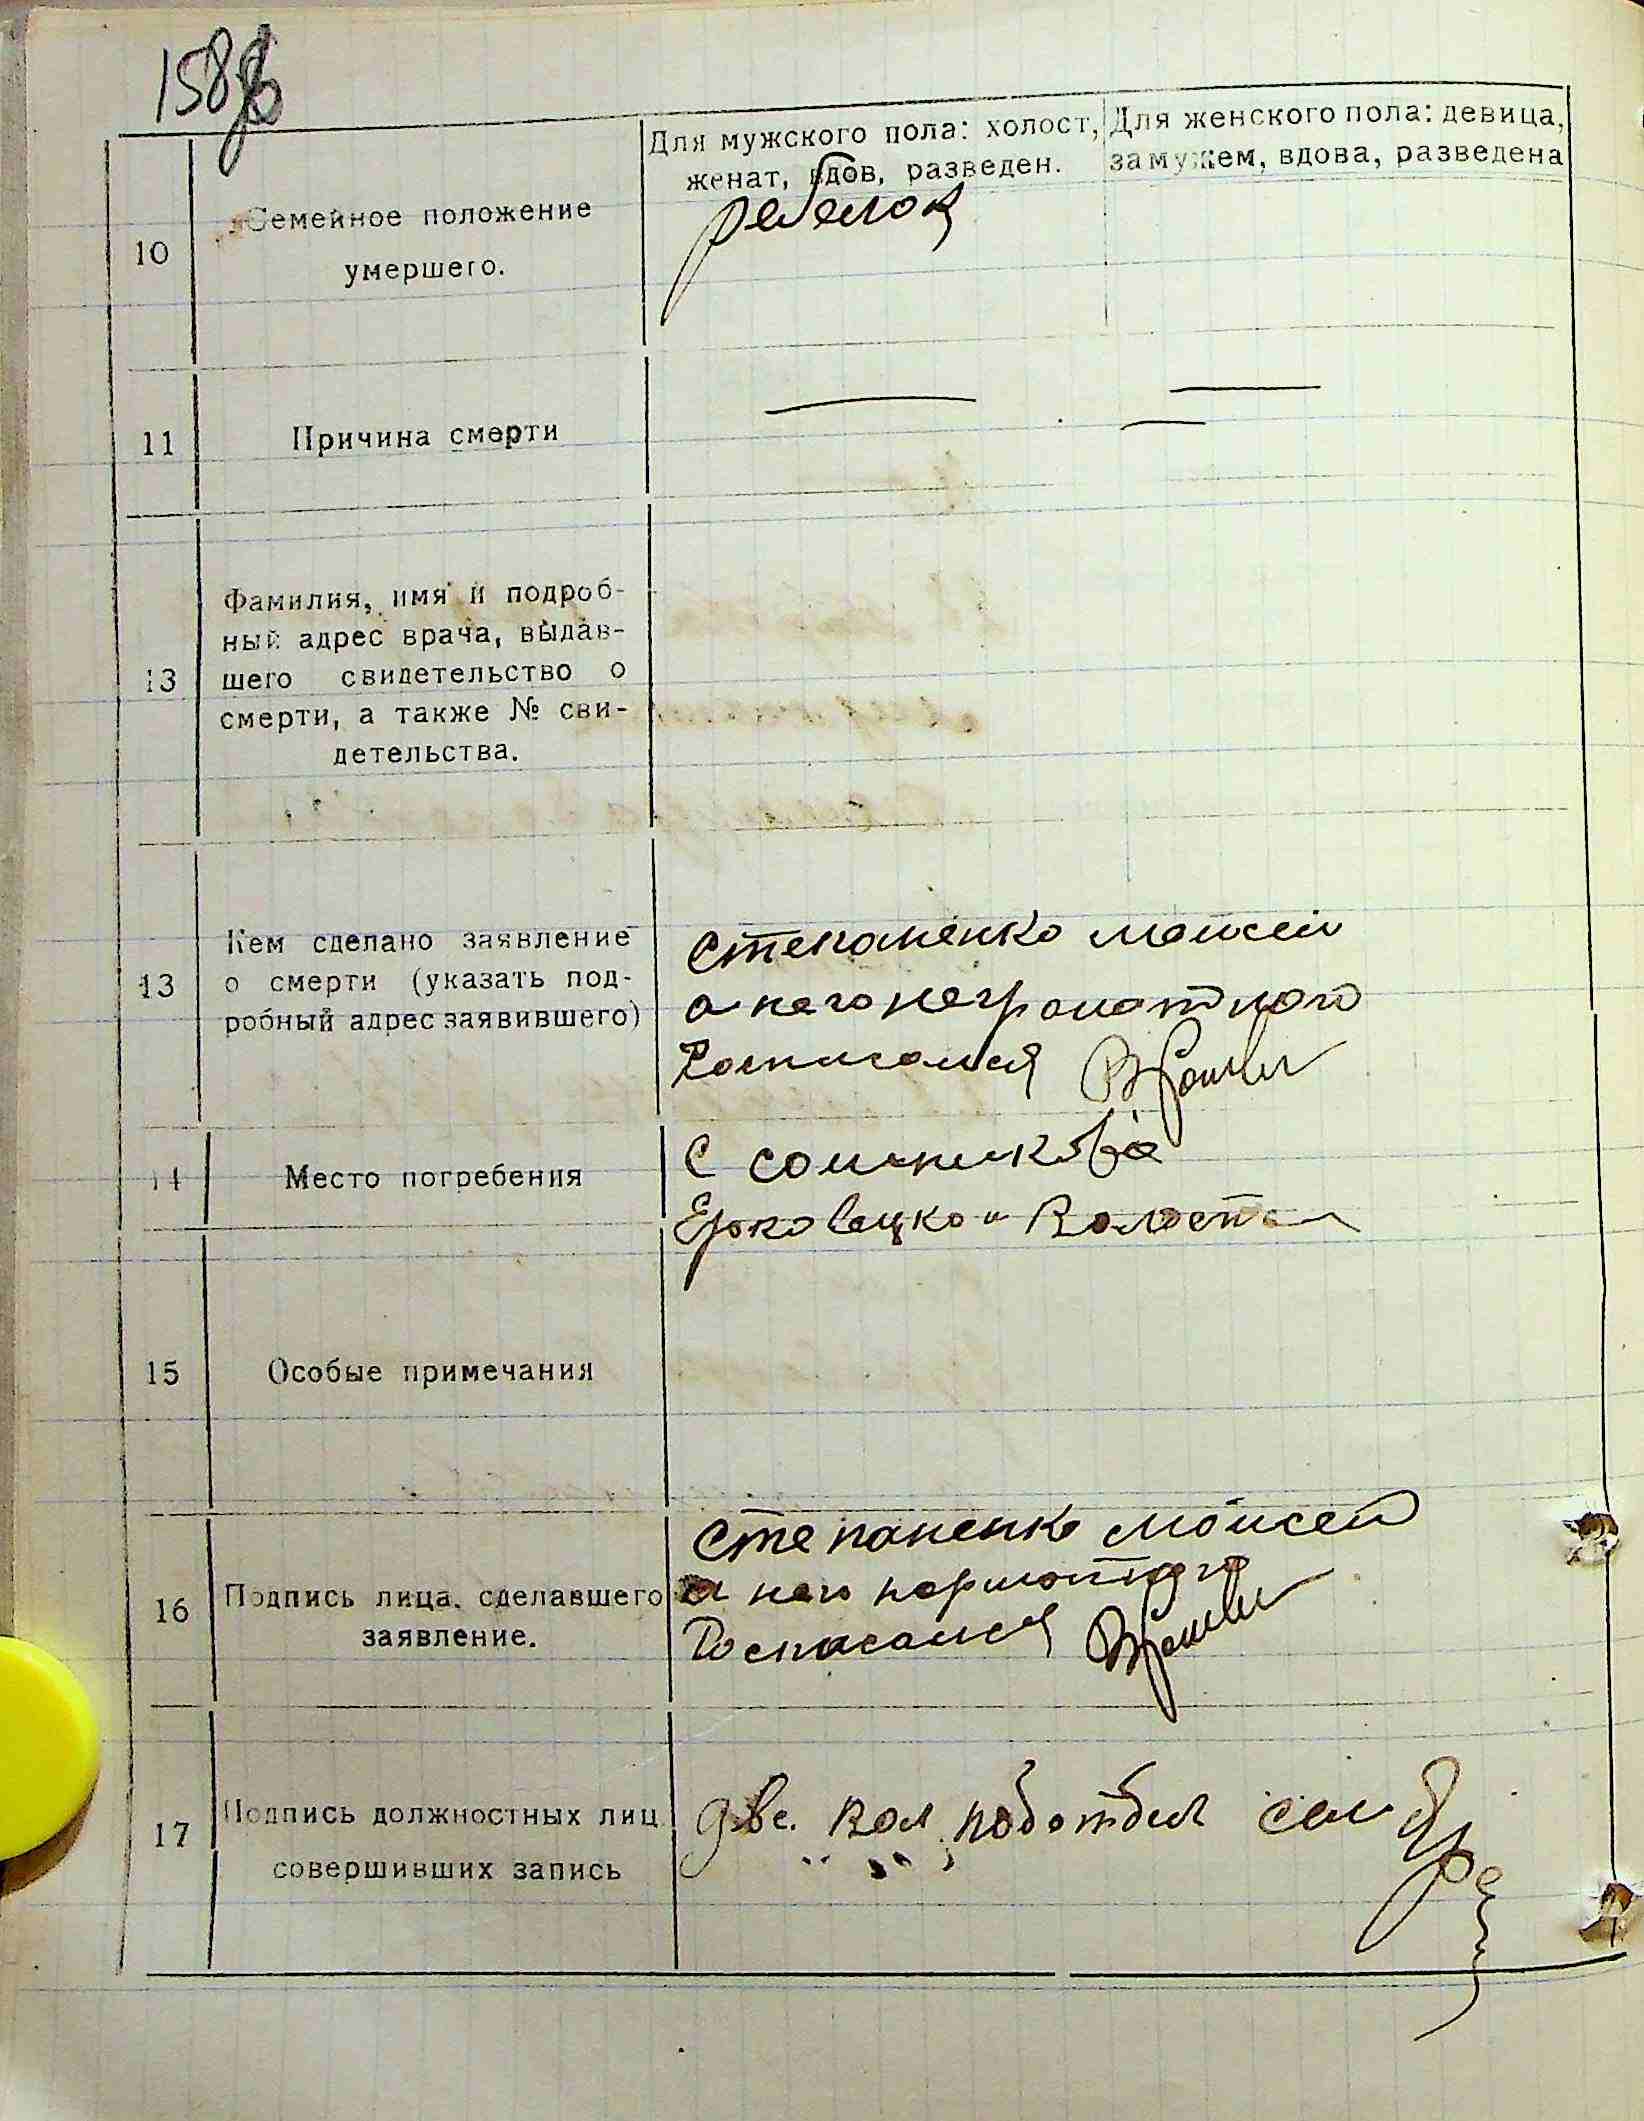 158
Для мужского пола: холост,
женат, вдов, разведен.
Для женского пола: девица,
замужем, вдова, разведена
10
Семейное положение
умершего.
ребенок
11
Причина смерти
13
Фамилия, имя и подроб-
ный адрес врача, выдав-
шего свидетельство о
смерти, а также № сви-
детельства.
13
Кем сделано заявление
о смерти (указать под-
робный адрес заявившего)
Степаненко Моисей
а него неграмотного
Росписался
14
Место погребения
С Сомникова
Ерковецкой Волости
15
Особые примечания
16
Подпись лица, сделавшего
заявление.
Степаненко Моисей
а него
Росписался
17
Подпись должностных лиц
совершивших запись